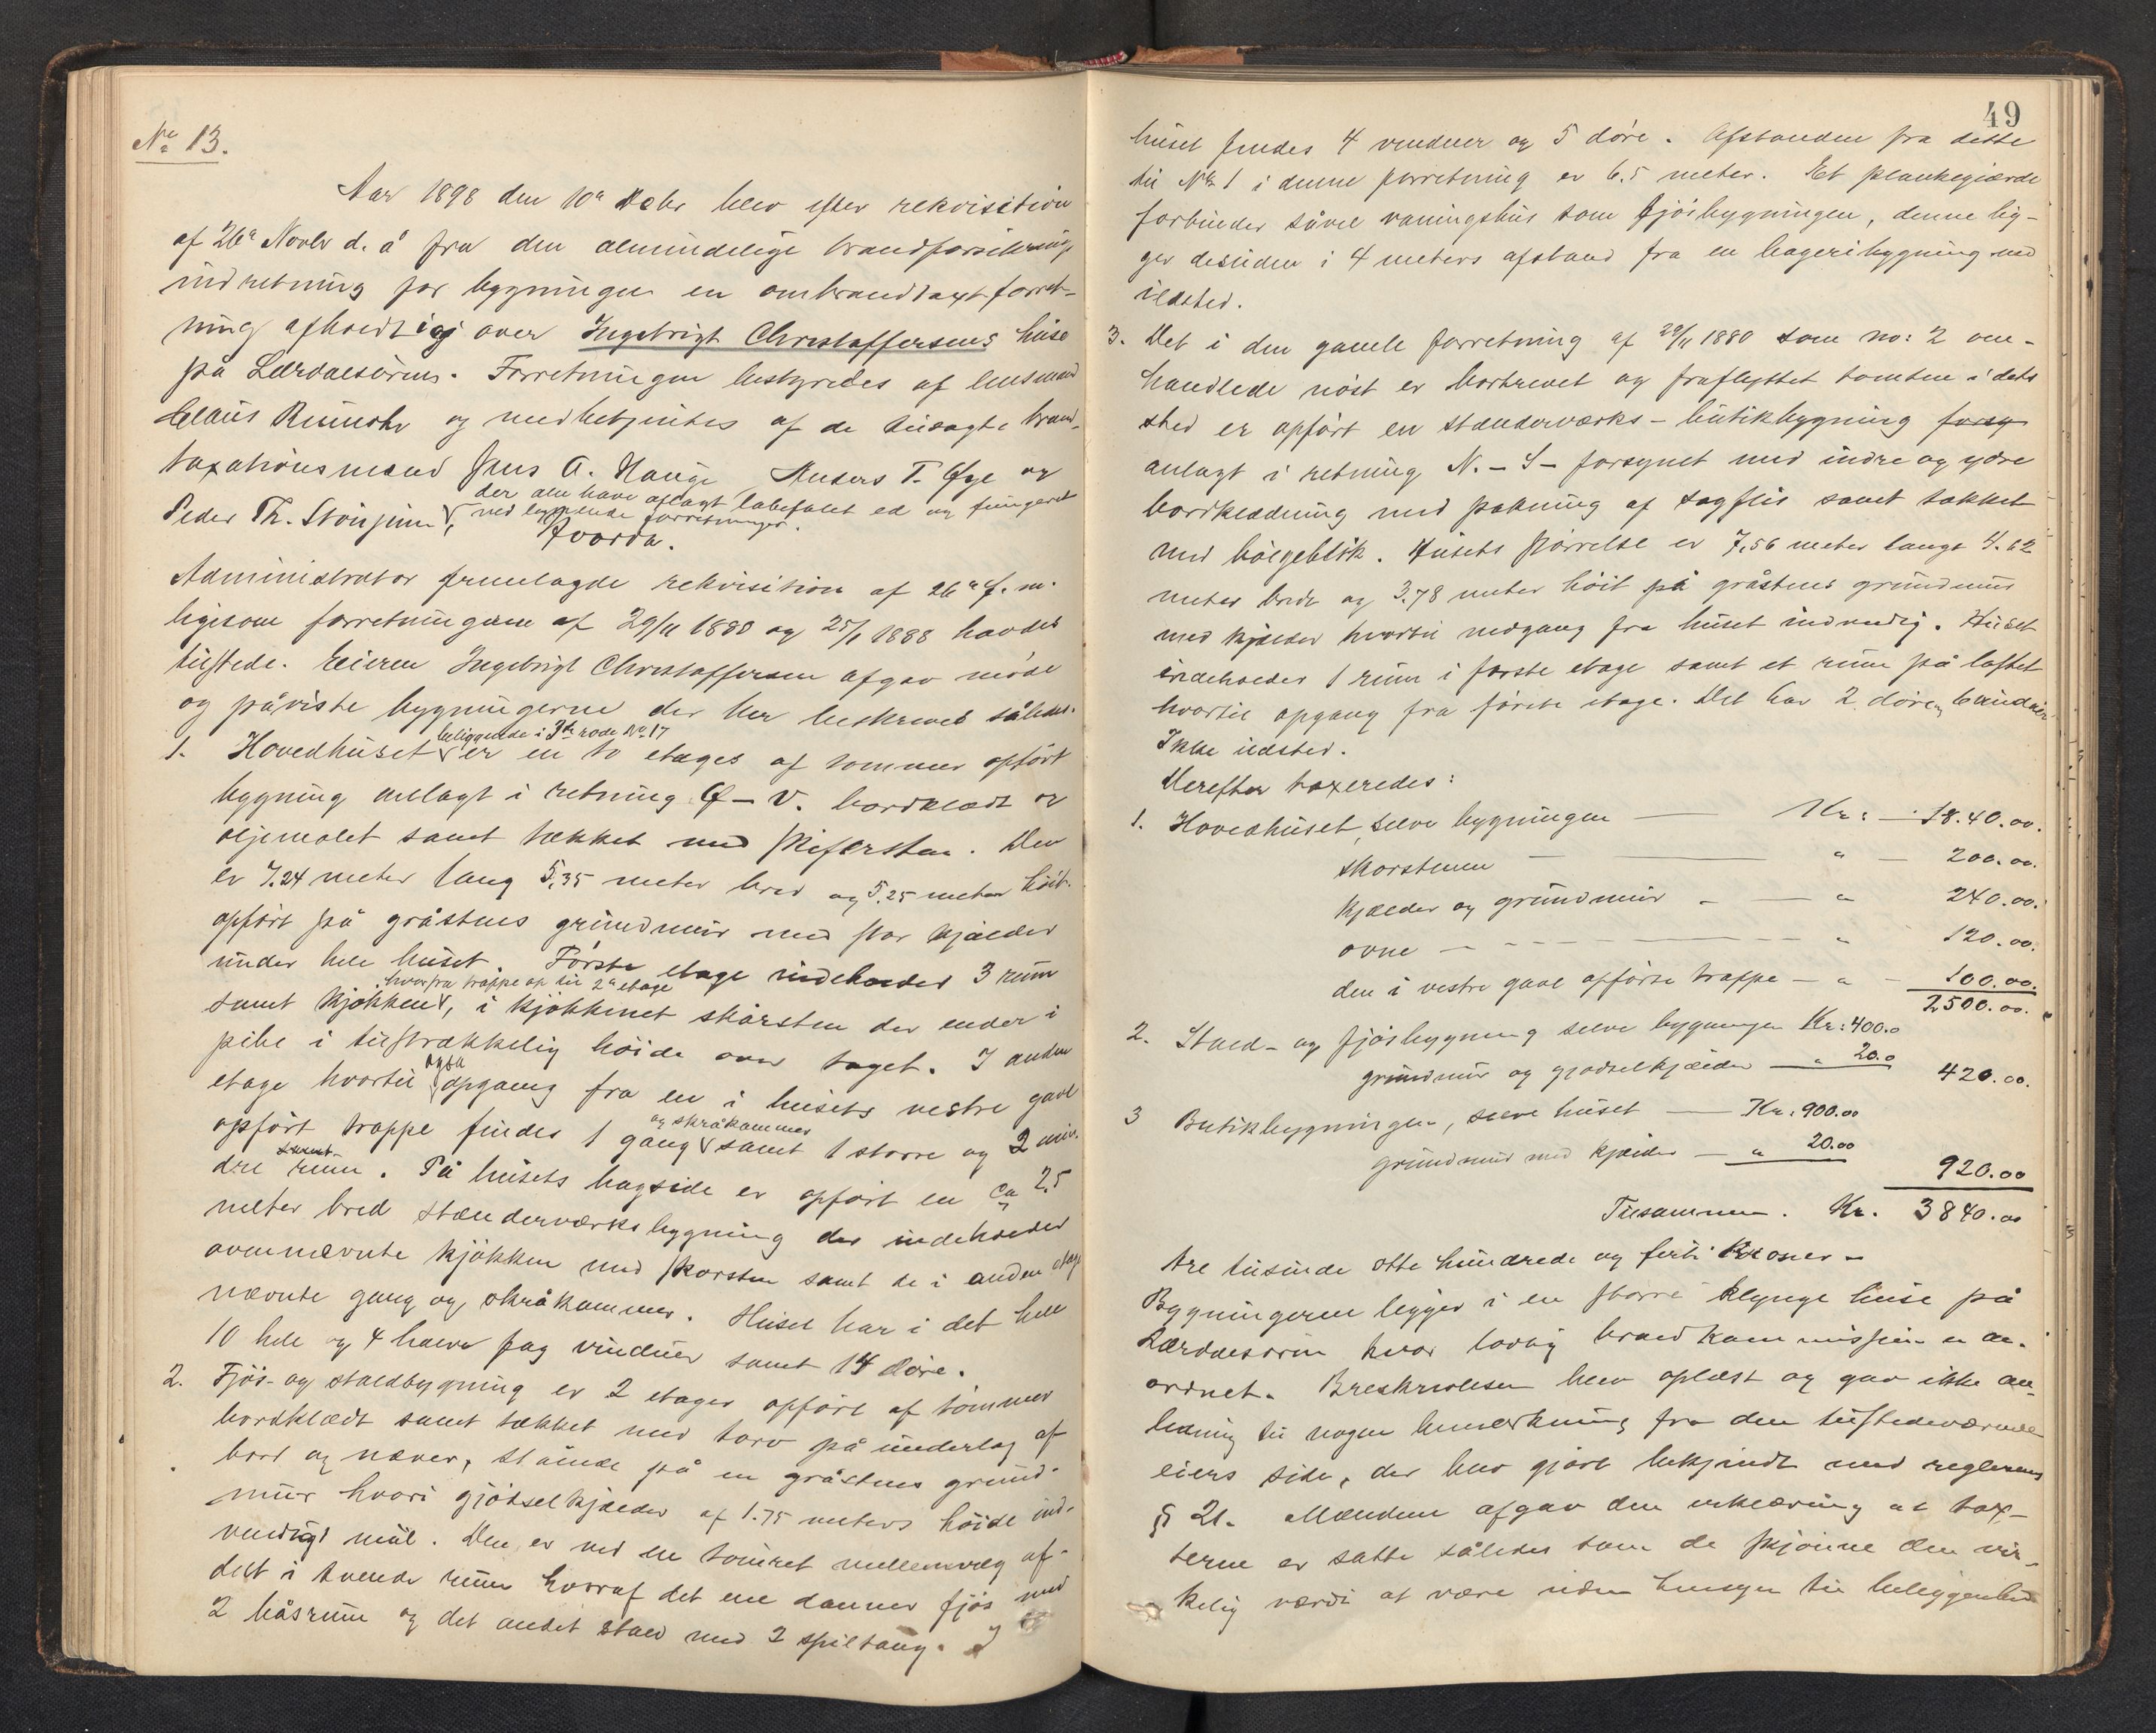 No 13.
Aar 1898 den 10de Decbr blev efter rekvisition
af 26de Novbr d. å fra den almindelige brandforsikrings
indretning for bygninger en ombrandtaxtforret-
ning afholdt over Ingebrigt Christoffersens huse
på Lærdalsøren. Forretningen bestyredes af lensmand
Claus Rumohr og medbetjentes af de tilsagte brand-
taxationsmænd Jens A. Hauge, Anders T. Øye og
der alle have aflagt lovbefalet ed og fungeret
Peder Th. Stönjum, ved lignende forretninger.
Hvorda.
Administrator fremlagde rekvisition af 26de f. m.
ligesom forretningerne af 29/11 1880 og 25/1 1888 havdes
tilstede. Eieren Ingebrigt Christoffersen afgav møde
og påviste bygningerne der her beskrives således:
beliggende i 3die rode No 17
1. Hovedhuset er en to etages af tømmer opført
bygning anlagt i retning Ø-V. bordklædt og
oljemalet samt tækket med skifersten. Den
er 7.24 meter lang 5,35 meter bred og 5.25 meter höit.
opført på gråstens grundmur med stor kjælder
under hele huset. Første etage indeholder 3 rum
hvorfra trappe op til 2den etage
samt kjøkken, i kjøkkenet skorsten der ender i
pibe i tilstrækkelig høide over taget. I anden
også
etage hvortil opgang fra en i husets vestre gavl
og skråkammer
opført trappe findes 1 gang samt 1 større og 2 min-
dre rum. På husets bagside er opført en ca 2,5
meter bred stænderværks bygning der indeholder
ovennævnte kjøkken med skorsten samt de i anden etage
nævnte gang og skråkammer. Huset har i det hele
10 hele og 4 halve fag vinduer samt 14 døre.
2. Fjøs- og staldbygning er 2 etages opført af tømmer
bordklædt samt tækket med torv på underlag af
bord og næver, stående på en gråstens grund-
mur hvori gjødselkjælder af 1.75 meters høide ind-
vendigt mål. Den er ved en tømret mellemvæg af-
delt i tvende rum hvoraf det ene danner fjøs med
2 båsrum og det andet stald med 2 spiltaug. I
49
huset findes 4 vinduer og 5 døre. Afstanden fra dette
til No 1 i denne forretning er 6.5 meter. Et plankegjærde
forbinder såvel våningshus som fjøsbygningen, denne lig-
ger desuden i 4 meters afstand fra en bageribygning med
ildsted.
3. Det i den gamle forretning af 29/11 1880 som no: 2 om-
handlede nøst er bortrevet og fraflyttet tomten i dets
sted er opført en stænderværks-butikbygning forsy
anlagt i retning N.-S- forsynet med indre og ydre
bordklædning med pakning af sagflis samt takket
med bølgeblik. Husets størrelse er 7,56 meter langt 4.62
meter bredt og 3.78 meter høit på gråstens grundmur
med kjælder hvortil nedgang fra huset indvendig. Huset
indeholder 1 rum i første etage samt et rum på loftet
hvortil opgang fra første etage. Det har 2 döre, 6 vinduer
Ikke ildsted.
Derefter taxeredes:
1. Hovedhuset, selve bygningen — Kr: — 18.40.00.
skorstenen — — " — 200.00.
kjælder og grundmur - — " 240.00.
ovne — — " 120.00.
den i vestre gavl opførte trappe — " — 100.00.
2500.00.
2. Stald- og fjøsbygning selve bygningen Kr: 400.0
grundmur og gjødselkjælder — " 20.0 420.00.
3 Butikbygningen, selve huset — Kr: 900.00
grundmur med kjælder — " 20.00
920.00
Tilsammen. Kr. 3840.00
tre tusinde otte hundrede og firti Kroner -
Bygningerne ligger i en større klynge huse på
Lærdalsøren hvor lovlig brandkommission er an-
ordnet. Breskrivelsen blev oplæst og gav ikke an-
ledning til nogen bemærkning fra den tilstedeværende
eiers side, der blev gjort bekjendt med reglerens
§ 21. Mændene afgav den erklæring at tax-
terne er satte således som de skjønne den vir-
kelig værdi at være uden hensyn til beliggenhed